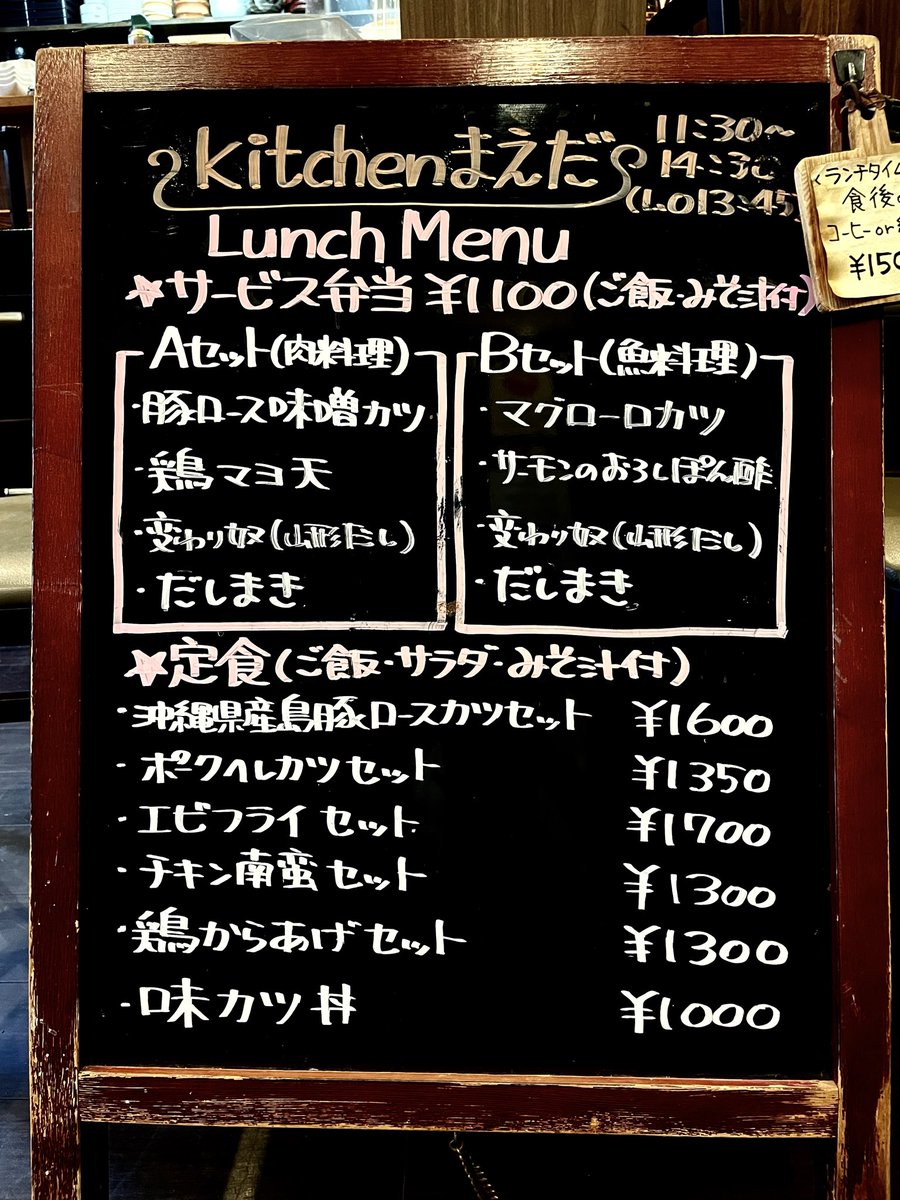 Kitchenまえだ
11:30〜
14:30
(LO13:45
Lunch Menu
★サービス弁当 ¥1100(ご飯・みそ汁付)
Aセット(肉料理)
・豚ロース味噌カツ
・鶏マヨ天
・変わり奴(山形だし)
・だしまき
Bセット(魚料理)
・マグローロカツ
・サーモンのおろしぽん酢
・変わり奴(山形だし)
・だしまき
★定食(ご飯・サラダ・みそ汁付)
・沖縄県産島豚ロースカツセット ¥1600
・ポークヘレカツセット ¥1350
・エビフライセット ¥1700
・チキン南蛮セット ¥1300
・鶏からあげセット ¥1300
・味カツ丼 ¥1000
ランチタイム
食後の
コーヒーor
¥150